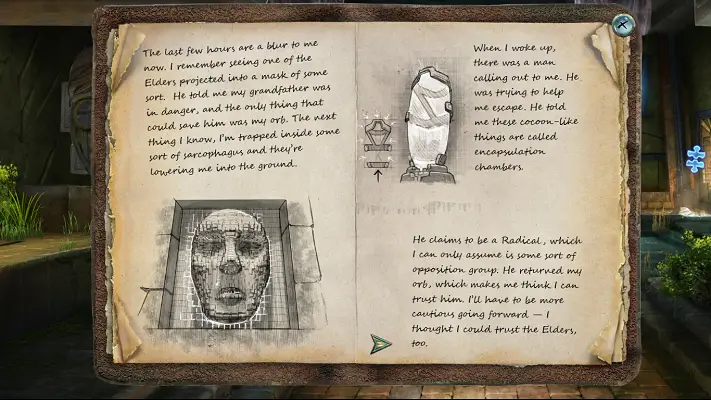 The last few hours are a blur to me
now. I remember seeing one of the
Elders projected into a mask of some
sort. He told me my grandfather was
in danger, and the only thing that
could save him was my orb. The next
thing I know, I'm trapped inside some
sort of sarcophagus and they're
lowering me into the ground.
When I woke up,
there was a man
calling out to me. He
was trying to help
me escape. He told
me these cocoon-like
things are called
encapsulation
chambers.
He claims to be a Radical, which
I can only assume is some sort of
opposition group. He returned my
orb, which makes me think I can
trust him. I'll have to be more
cautious going forward — I
thought I could trust the Elders,
too.